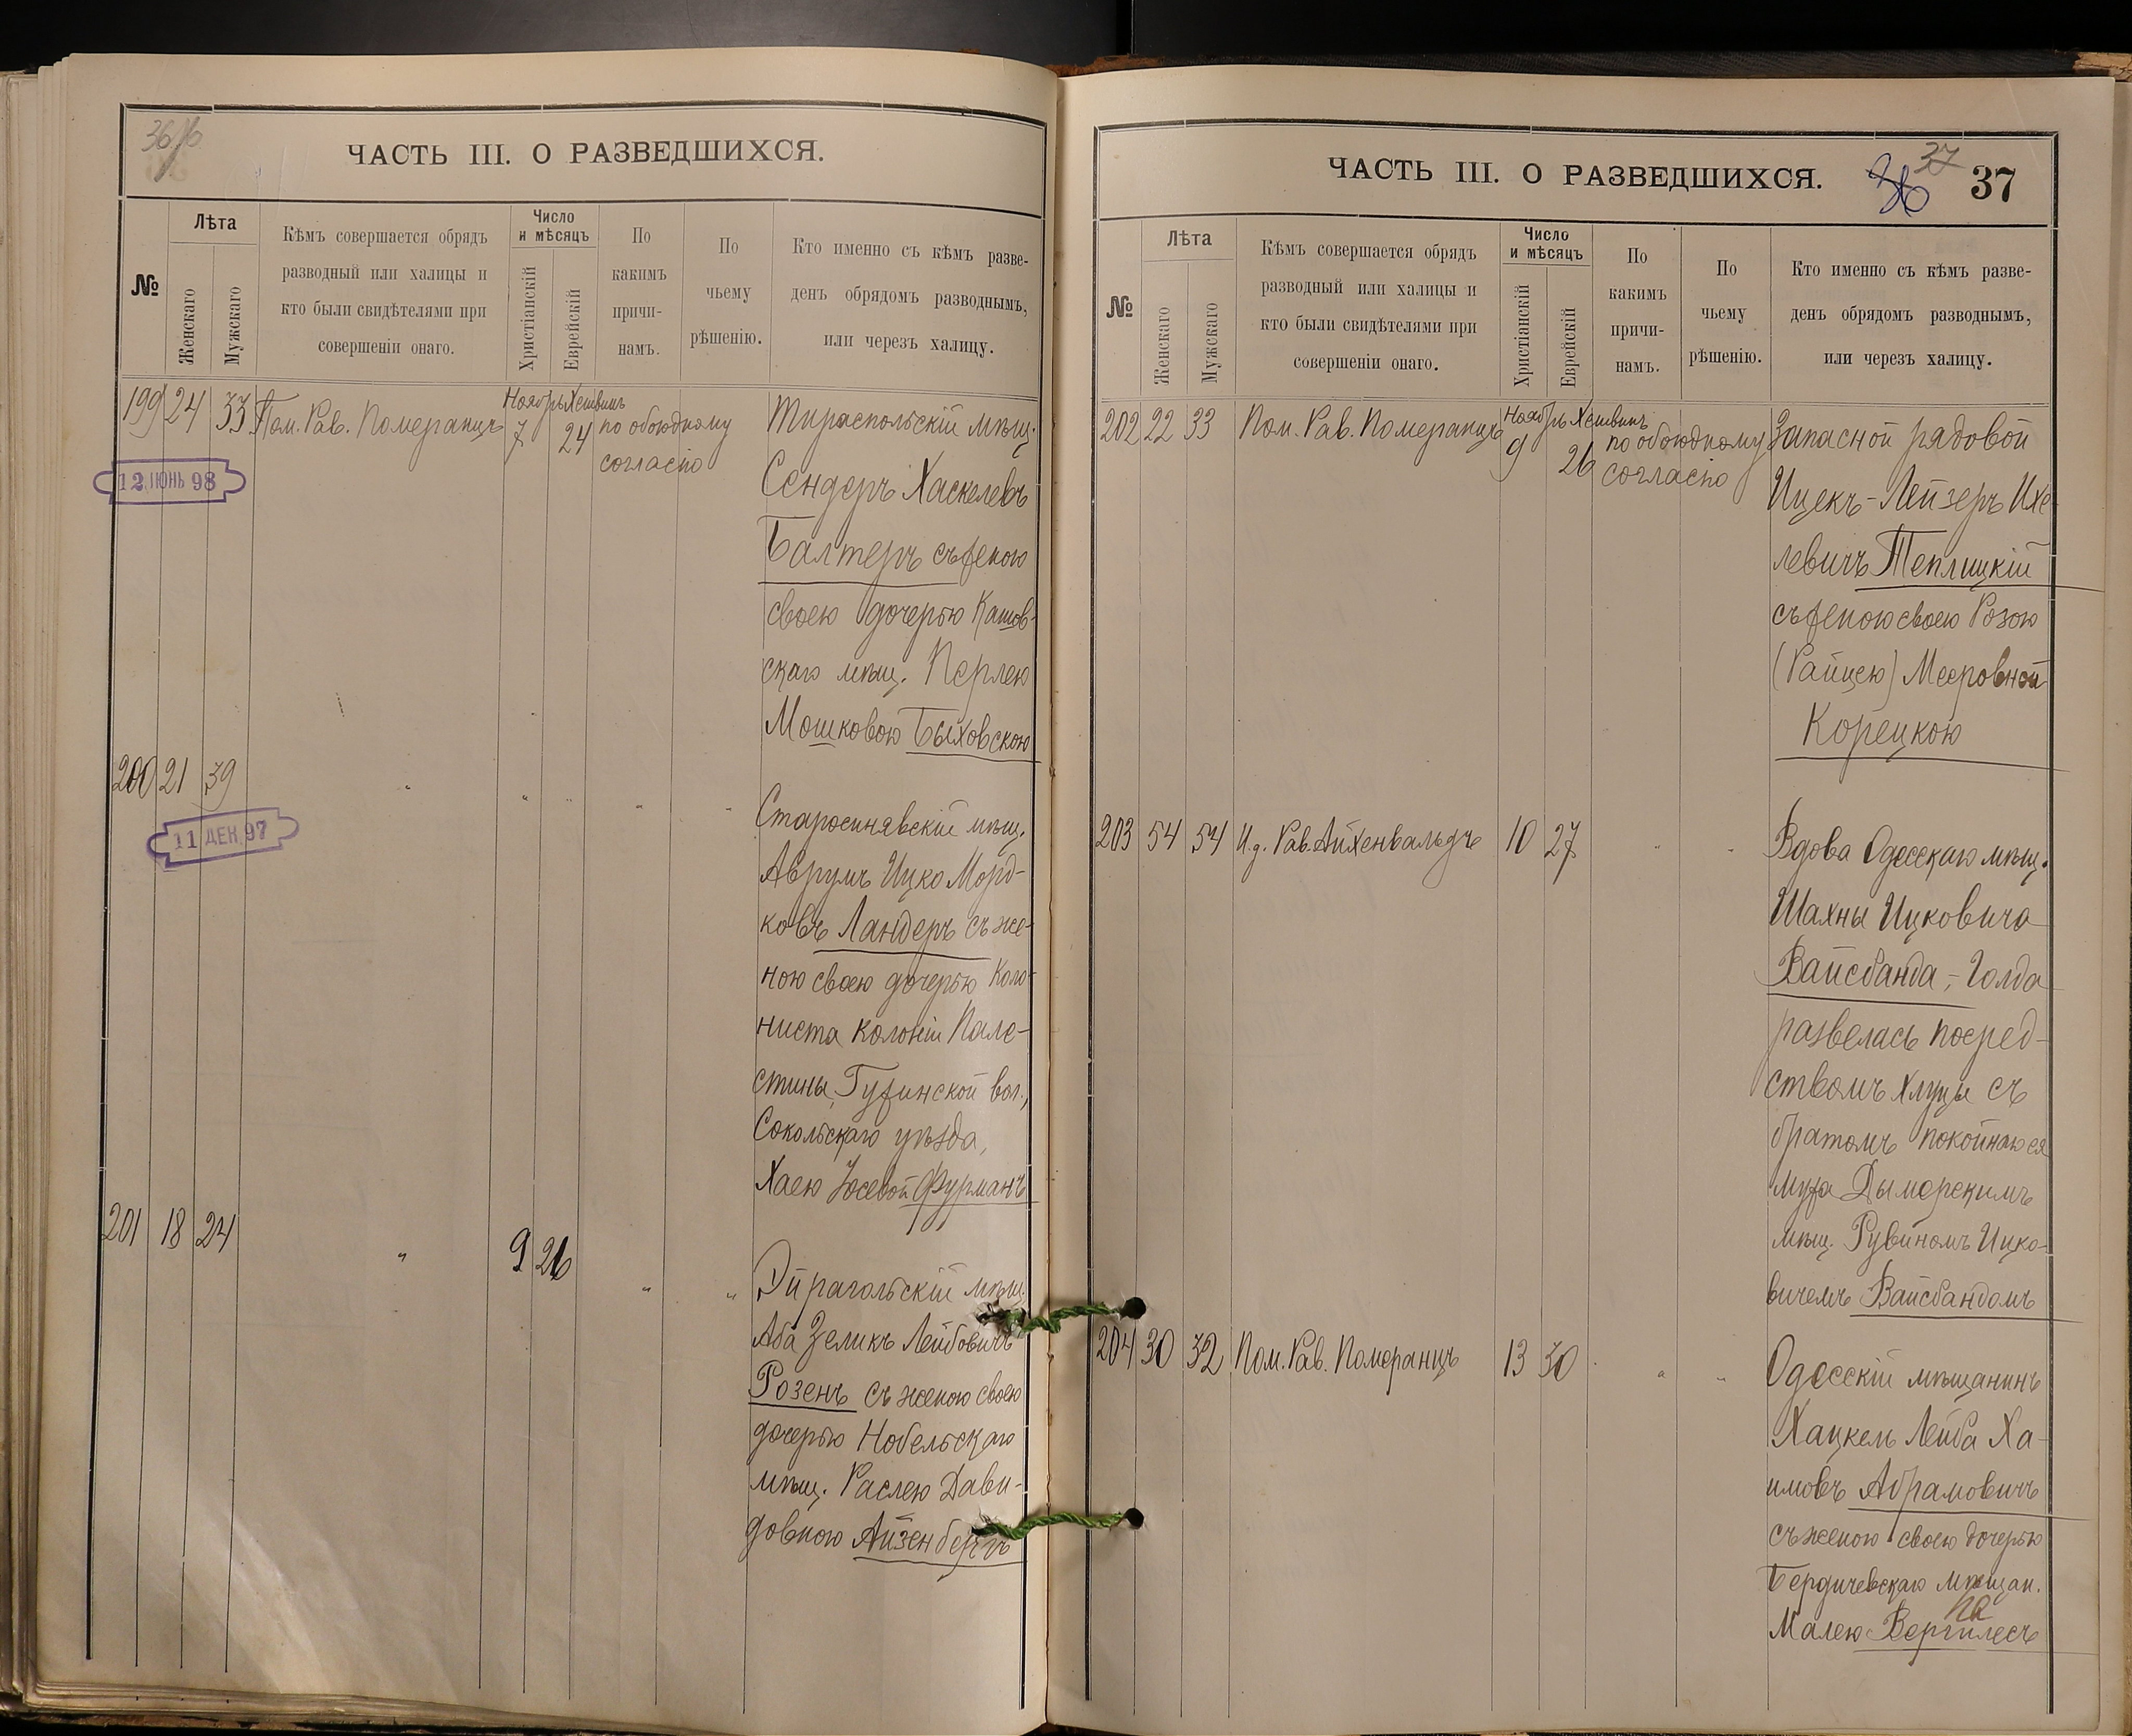 36/б
ЧАСТЬ III. О РАЗВЕДШИХСЯ.
№
Лѣта
Женскаго
Мужскаго
Кѣмъ совершается обрядъ
разводный или халицы и
кто были свидѣтелями при
совершеніи онаго.
Число
и мѣсяцъ
Христіанскій
Еврейскій
По
какимъ
причи-
намъ.
По
чьему
рѣшенію.
Кто именно съ кѣмъ разве-
денъ обрядомъ разводнымъ,
или черезъ халицу.
199 24 33 Пом. Рав. Померанцъ Ноябрь 7 Хешвинъ 24 по обоюдному
согласію
12 ІЮНЬ 98
Тираспольскій мѣщ.
Сендеръ Хаскелевъ
Балтеръ съ женою
своею дочерью
скаго мѣщ. Перлею
Мошковою Быховскою
200 21 39 " " " " "
11 ДЕК. 97
Старосинявскій мѣщ.
Аврумъ Ицко Морд-
ковъ Ландеръ съ же-
ною своею дочерью Коло-
ниста колоніи Пале-
стины, вол.,
Сокольскаго уѣзда,
Хаею Іосевой Фурманъ
201 18 24 " 9 26 " "
Эйрагольскій мѣщ.
Аба Зеликъ Лейбовичъ
Розенъ съ женою своею
дочерью Нобельскаго
мѣщ. Раслею Дави-
довною Айзенбергъ
ЧАСТЬ III. О РАЗВЕДШИХСЯ.
37
36
37
№
Лѣта
Женскаго
Мужскаго
Кѣмъ совершается обрядъ
разводный или халицы и
кто были свидѣтелями при
совершеніи онаго.
Число
и мѣсяцъ
Христіанскій
Еврейскій
По
какимъ
причи-
намъ.
По
чьему
рѣшенію.
Кто именно съ кѣмъ разве-
денъ обрядомъ разводнымъ,
или черезъ халицу.
202 22 33 Пом. Рав. Померанцъ Ноябрь 9 Хешвинъ 26 по обоюдному
согласію
Запасной рядовой
Ицекъ-Лейзеръ Ихе-
левичъ Теплицкій
съ женою своею Розою
(Райцею) Мееровной
Корецкою
203 54 54 И.д. Рав. Айхенвальдъ 10 27 " "
Вдова Одесскаго мѣщ.
Шахны Ицковича
Вайсбанда, - Голда
развелась посред-
ствомъ хлицы съ
братомъ покойнаго ея
мужа Дымерскимъ
мѣщ. Рувиномъ Ицко-
вичемъ Вайсбандомъ
204 30 32 Пом. Рав. Померанцъ 13 30 " "
Одесскій мѣщанинъ
Хацкель Лейба Ха-
имовъ Абрамовичъ
съ женою своею дочерью
Бердичевскаго мѣщан.
на
Малею Вергилесъ